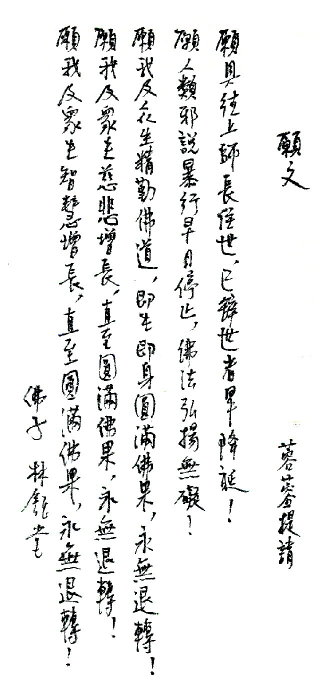 願文
蓉蓉提請
願具德上師長住世，已辭世者早降誕！
願人類邪說暴行早日停止，佛法弘揚無礙！
願我及眾生精勤佛道，即生即身圓滿佛果，永無退轉！
願我及眾生慈悲增長，直至圓滿佛果，永無退轉！
願我及眾生智慧增長，直至圓滿佛果，永無退轉！
佛子 林鈺堂